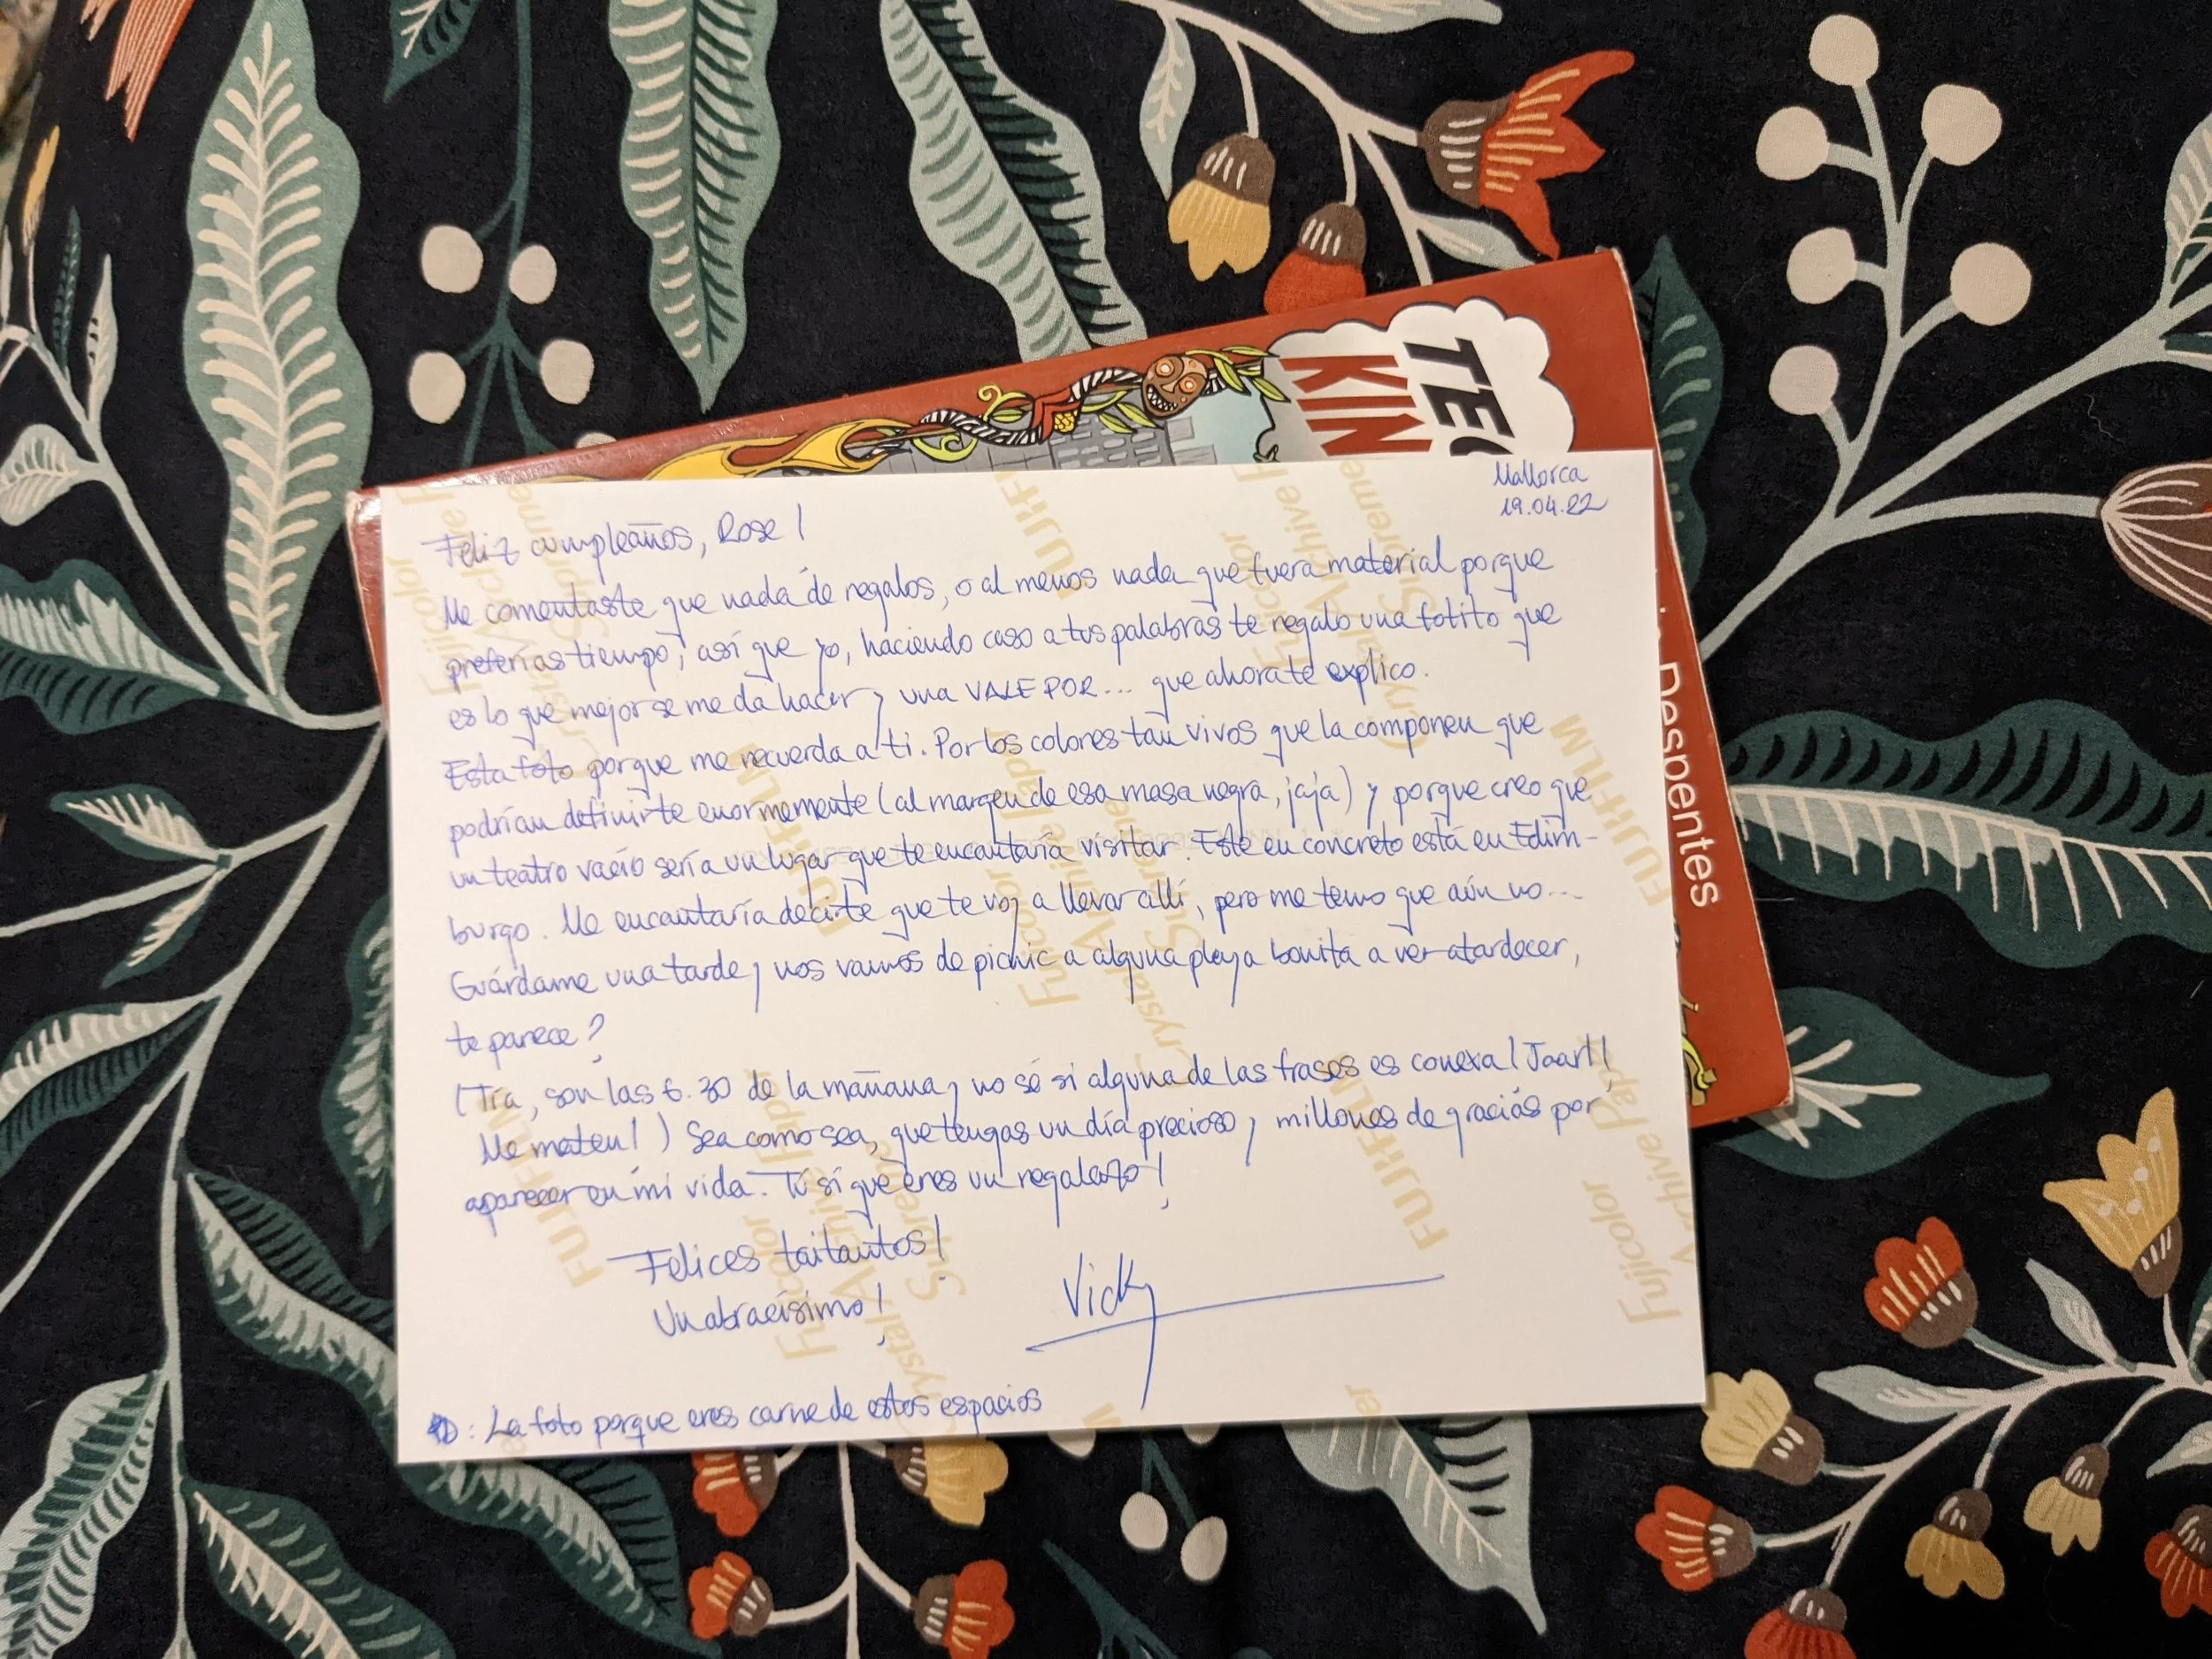 TEO
KIN
Despentes
Mallorca
19.04.22
Feliz cumpleaños, Rose!
Me comentaste que nada de regalos, o al menos nada que fuera material porque
preferías tiempo, así que yo, haciendo caso a tus palabras te regalo una fotito que
es lo que mejor se me da hacer y una VALE POR... que ahora te explico.
Esta foto porque me recuerda a ti. Por los colores tan vivos que la componen que
podrían definirte enormemente (al margen de esa masa negra, jaja) y porque creo que
un teatro vacío sería un lugar que te encantaría visitar. Este en concreto está en Edim-
burgo. Me encantaría decirte que te voy a llevar allí, pero me temo que aún no...
Guárdame una tarde y nos vamos de picnic a alguna playa bonita a ver atardecer,
te parece?
(Tía, son las 6.30 de la mañana y no sé si alguna de las frases es conexa! Jaart!
Me maten!) Sea como sea, que tengas un día precioso y millones de gracias por
aparecer en mi vida. Tú sí que eres un regalazo!
Felices taitantos!
Un abracísimo!
Vicky
PD: La foto porque eres carne de estos espacios
FUJIFILM
Fujicolor
Crystal Archive Paper
Supreme